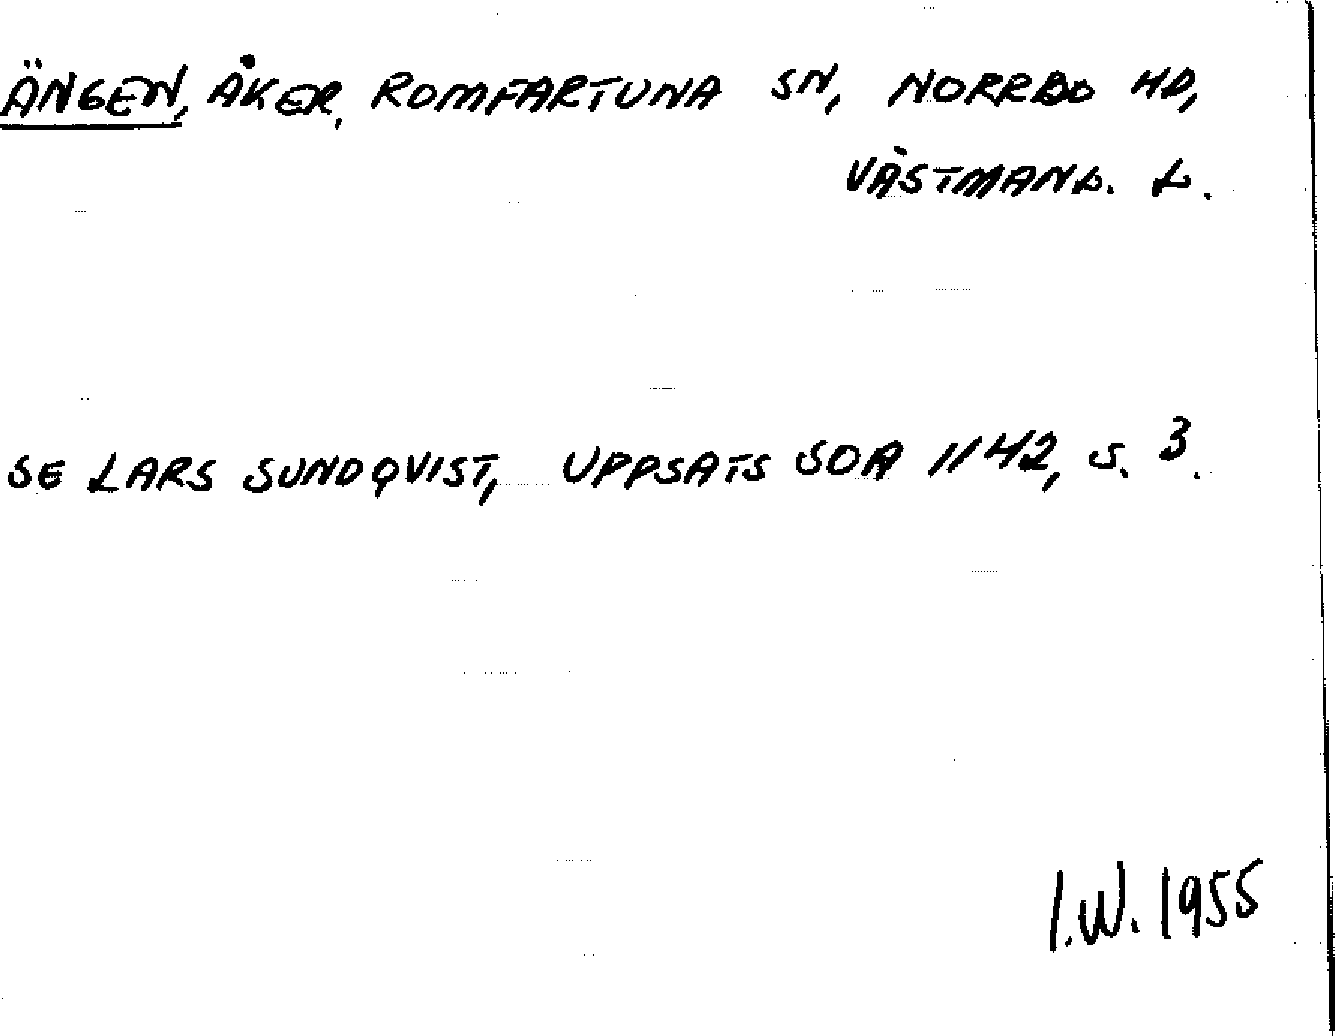 ÄNGEN, ÅKER, ROMFARTUNA SN, NORRBO HD,
VÄSTMANL. L.
SE LARS SUNDQVIST, UPPSATS SOA 1142, S. 3.
I.W. 1955